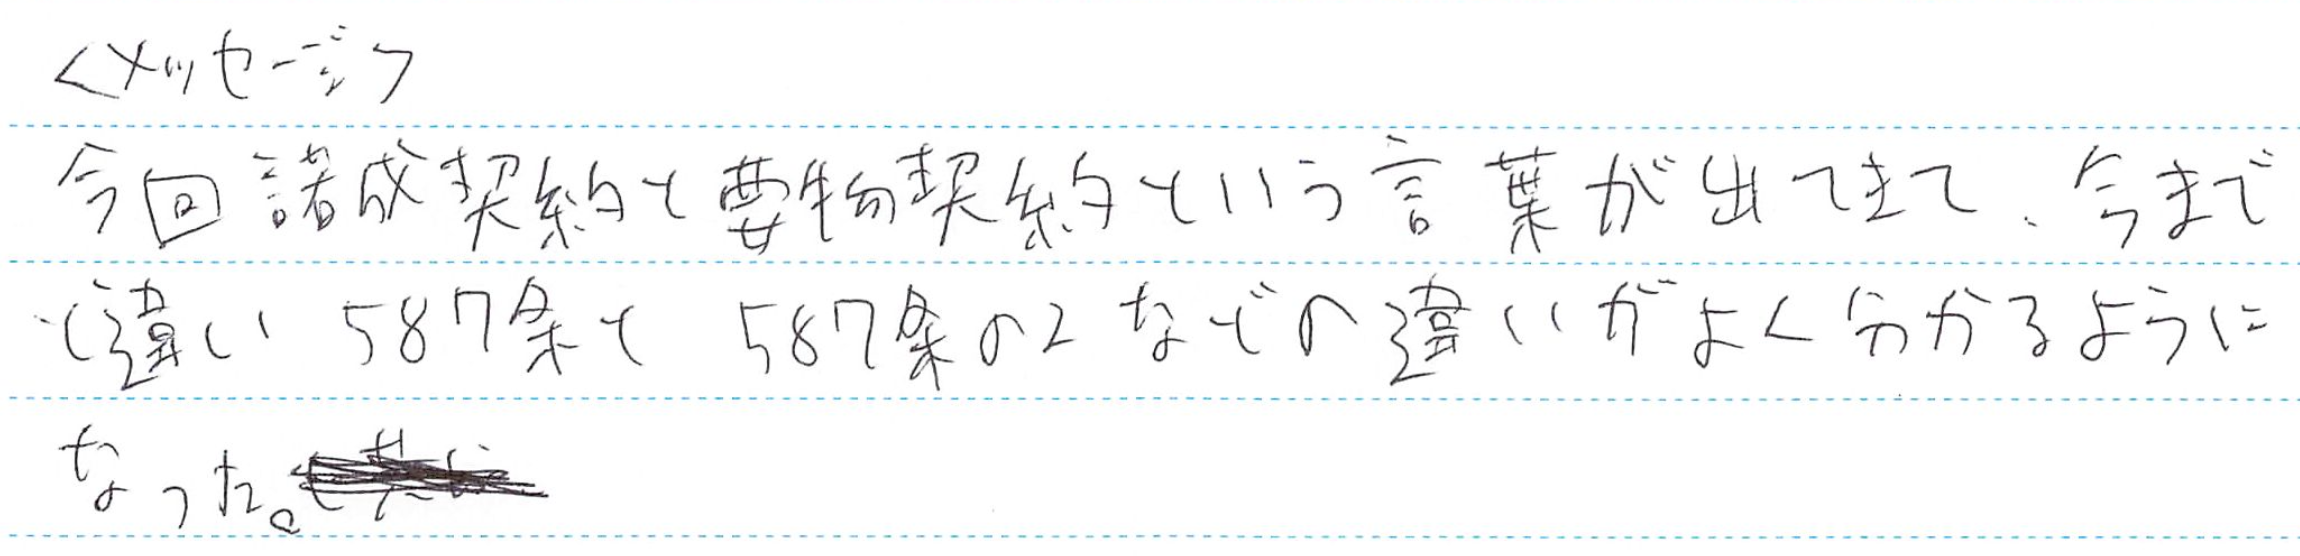 <メッセージ>
今回諾成契約と要物契約という言葉が出てきて、今まで
と違い 587条と 587条の2 などの違いがよく分かるように
なった。